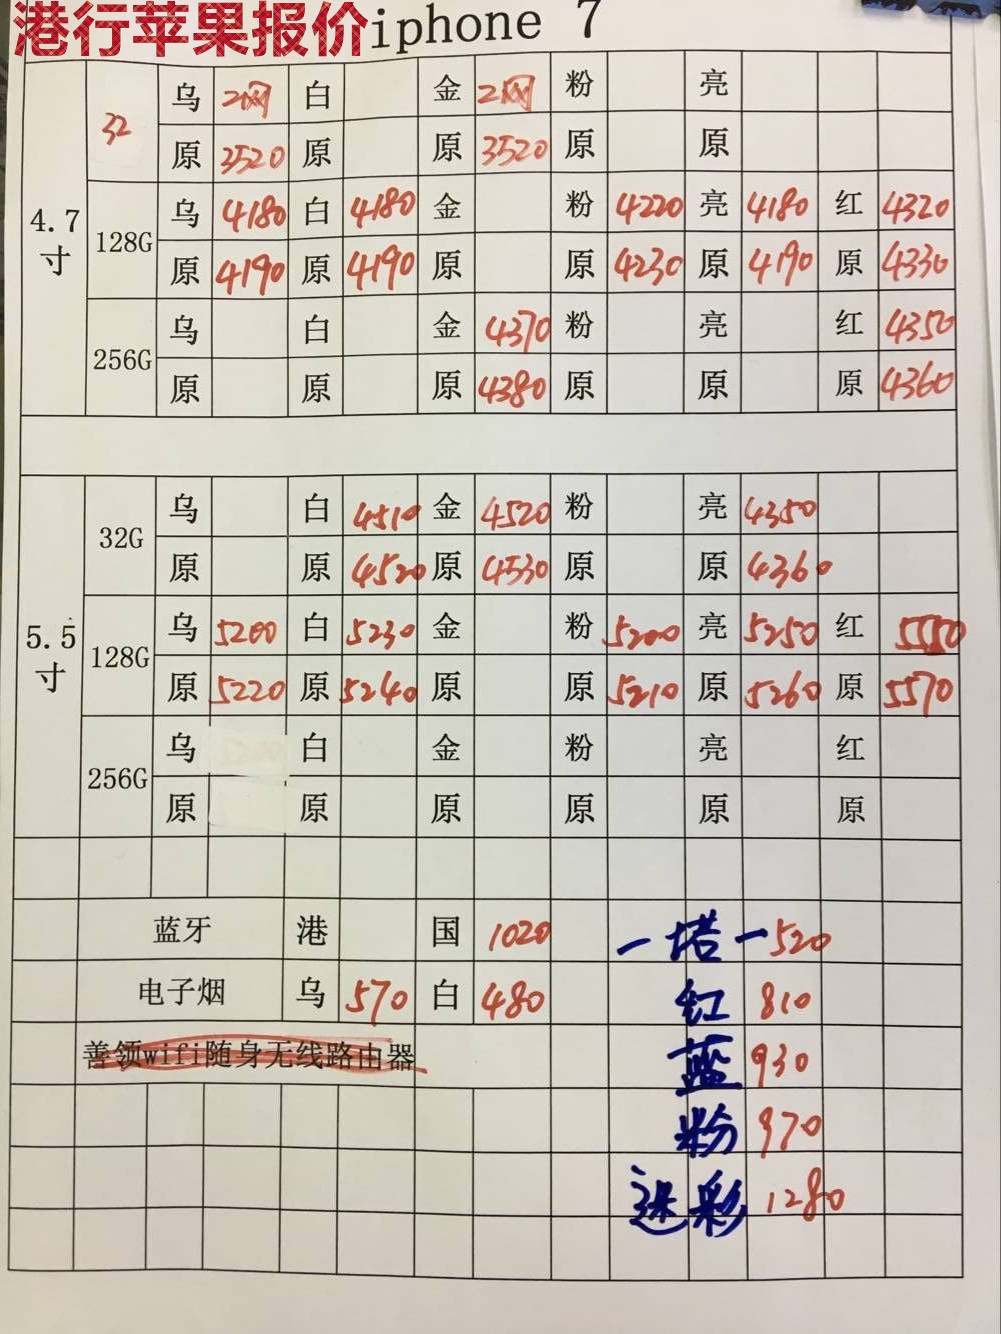 港行苹果报价 iphone 7
32 乌 2网 白 金 2网 粉 亮
原 3520 原 原 3520 原 原
4.7寸 128G 乌 4180 白 4180 金 粉 4220 亮 4180 红 4320
原 4190 原 4190 原 原 4230 原 4190 原 4330
256G 乌 白 金 4370 粉 亮 红 4350
原 原 原 4380 原 原 原 4360
32G 乌 白 4510 金 4520 粉 亮 4350
原 原 4520 原 4530 原 原 4360
5.5寸 128G 乌 5200 白 5230 金 粉 5200 亮 5250 红 5550
原 5220 原 5240 原 原 5210 原 5260 原 5570
256G 乌 白 金 粉 亮 红
原 原 原 原 原 原
蓝牙 港 国 1020 一塔一 520
电子烟 乌 570 白 480 红 810
善领wifi随身无线路由器 蓝 930
粉 970
迷彩 1280